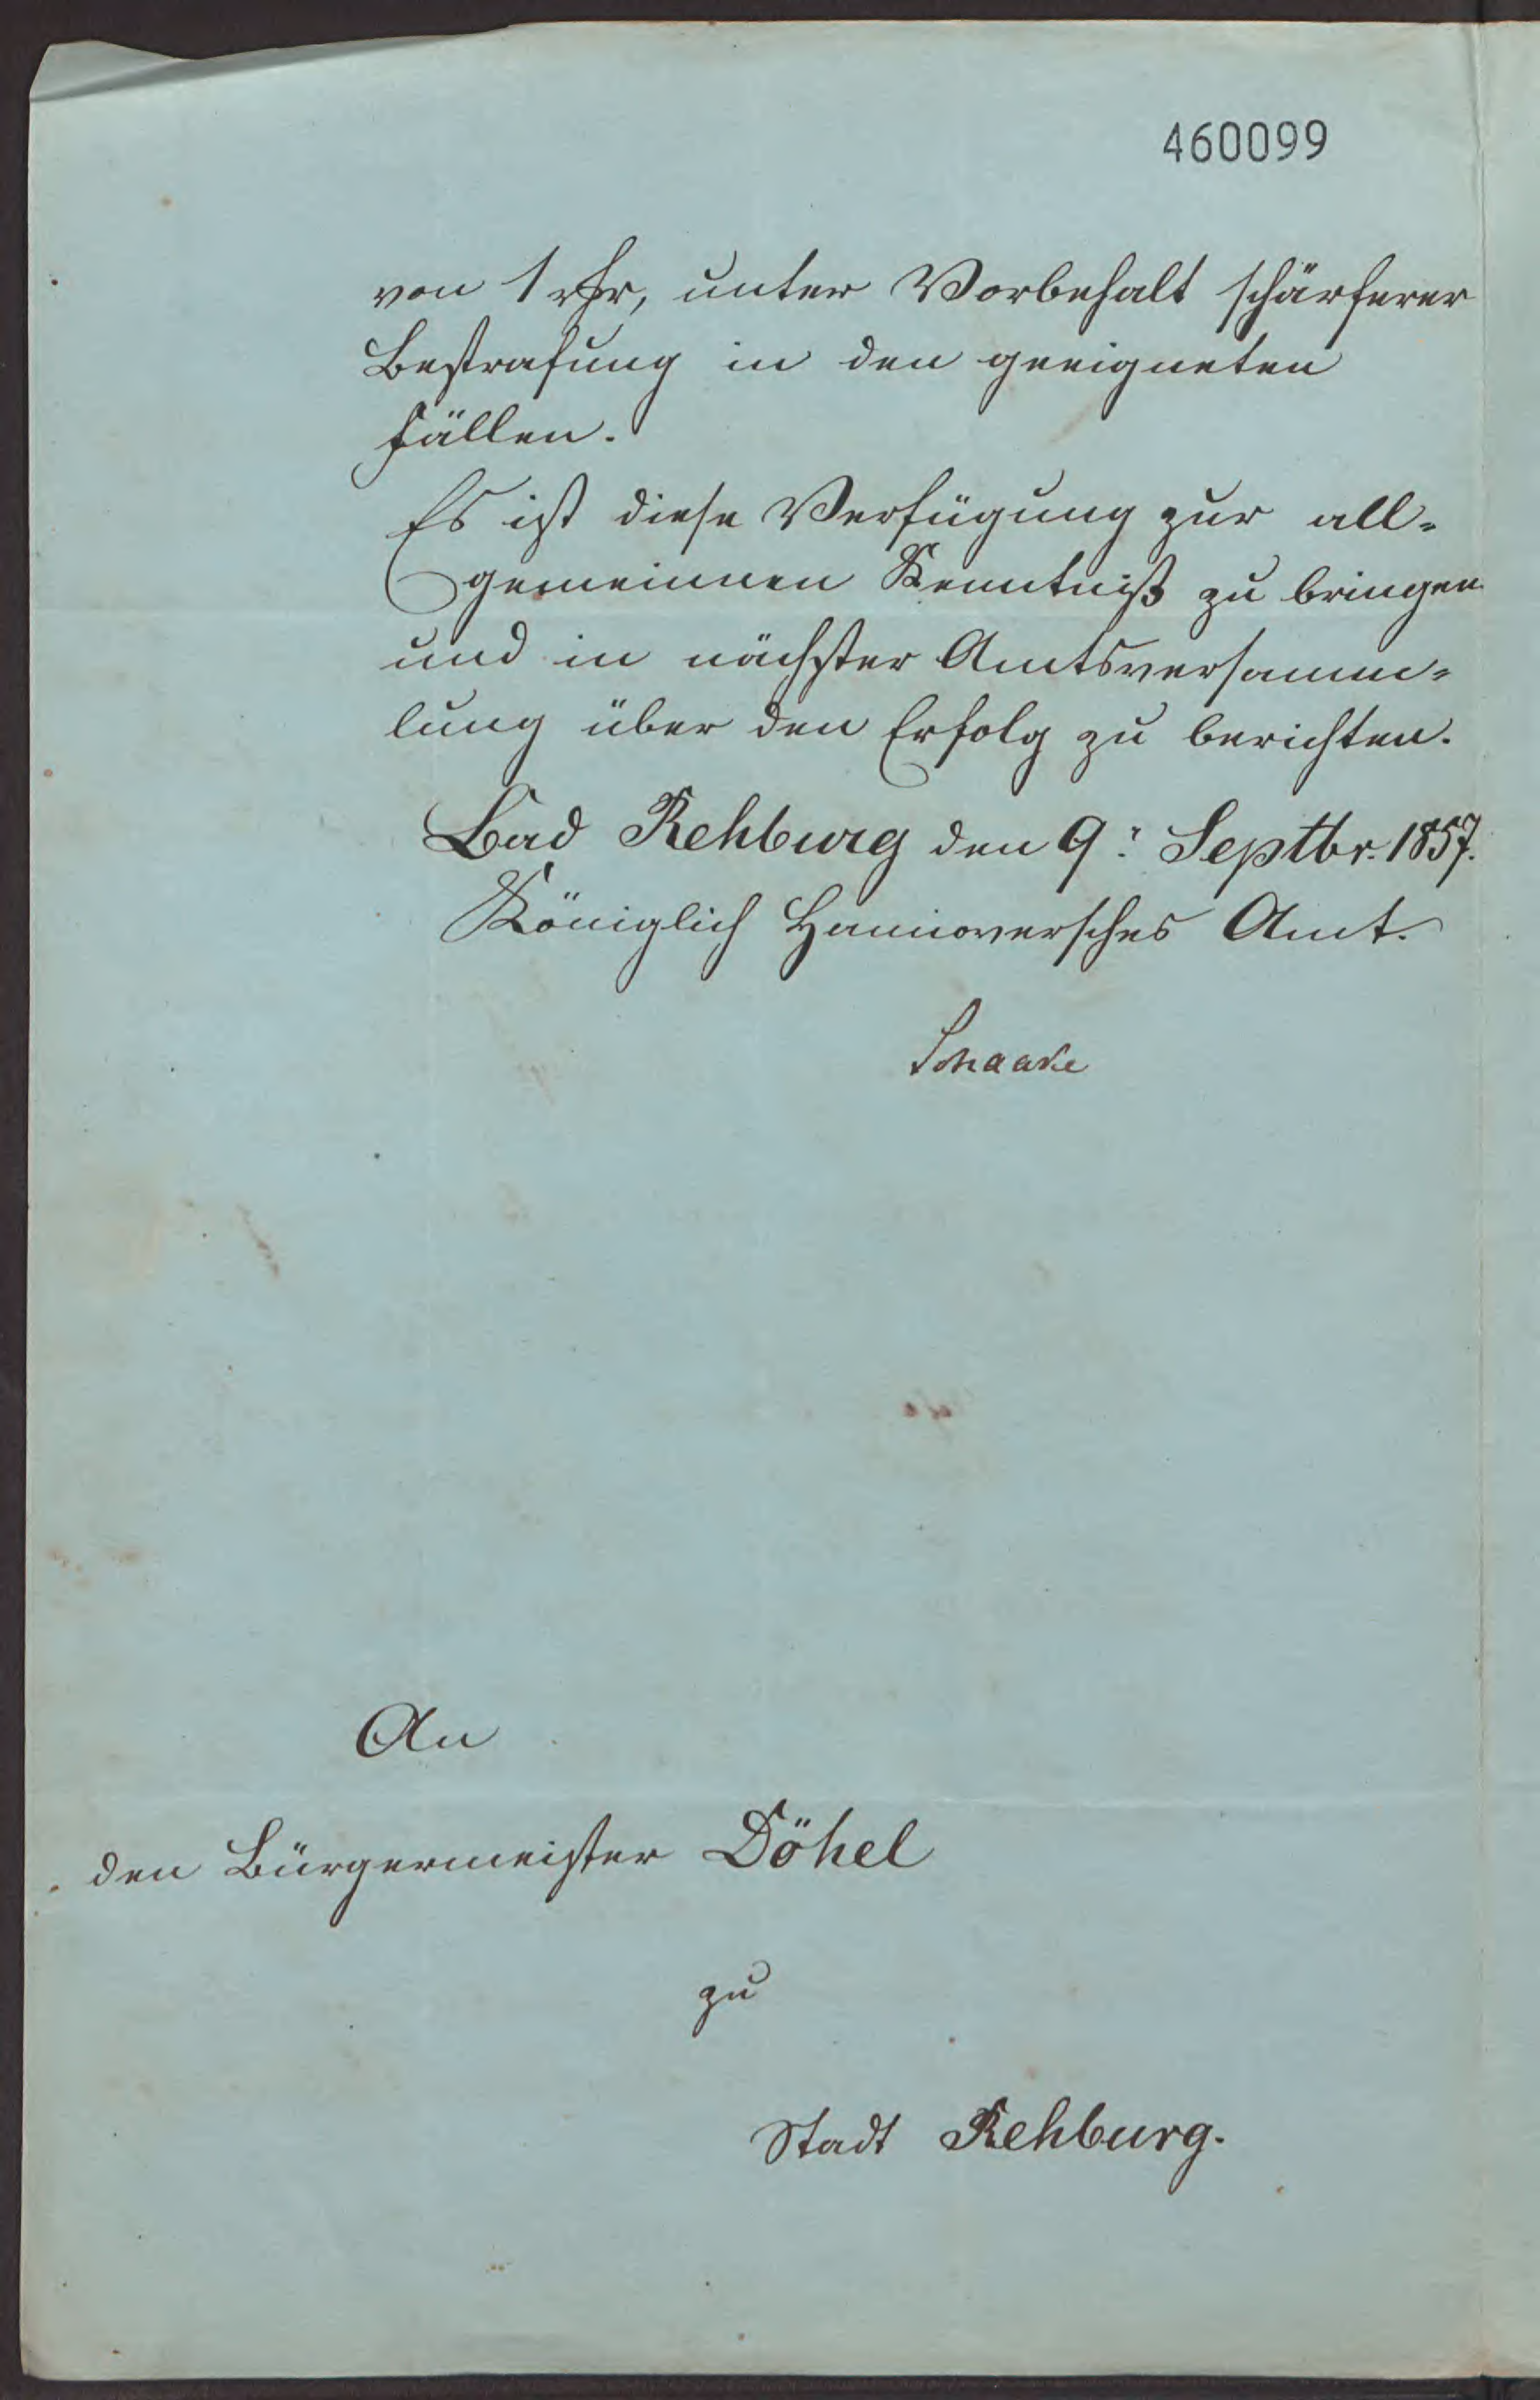 460099
von 1 rthr, unter Vorbehalt schärferer
Bestrafung in den geeigneten
Fällen.
Es ist diese Verfügung zur all-
gemeinnen Kenntniß zu bringen
und in nächster Amtsversamm-
lung über den Erfolg zu berichten.
Bad Rehburg den 9. Septbr. 1857.
Königlich Hannoversches Amt.
Schaake
An
den Bürgermeister Döhel
zu
Stadt Rehburg.